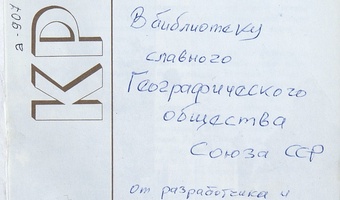 а-907
КР
В библиотеку
славного
Географического
общества
Союза ССР
от разработчика и